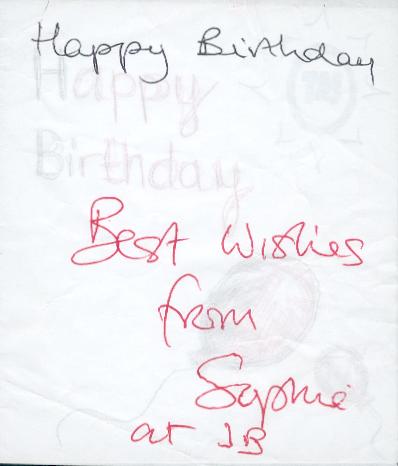 Happy Birthday
Happy
Birthday
Best Wishes
from
Sophie
at JB